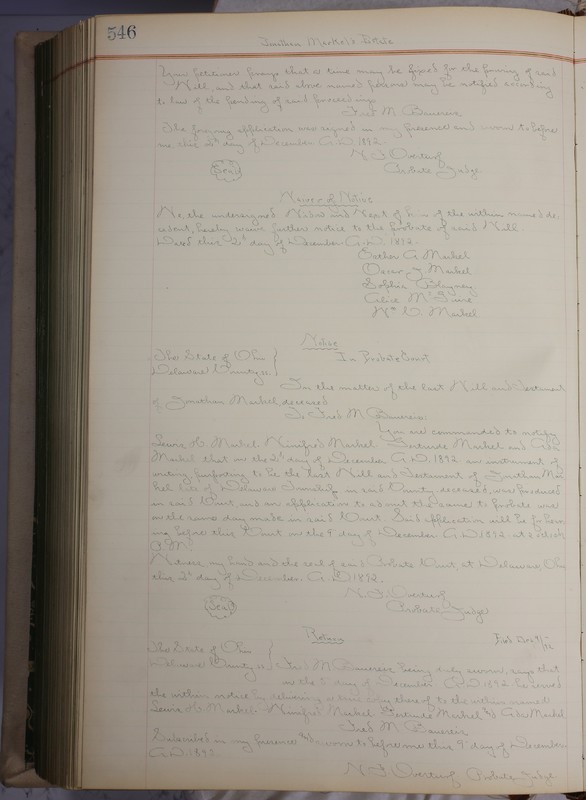 546
Jonathan Markel's Estate
Your petitioner prays that a time may be fixed for the proving of said
Will, and that said above named persons may be notified according
to law of the pending of said proceedings.
Fred M. Bauereis
The foregoing application was signed in my presence and sworn to before
me this 2d day of December A.D. 1892.
N. F. Overturf
Seal
Probate Judge
Waiver of Notice
We, the undersigned Widow and Next of kin of the within named de-
cedent, hereby waive further notice to the probate of said Will.
Dated this 2d day of December A.D. 1892.
Esther A. Markel
Oscar J. Markel
Sophia
Alice
Wm Markel
Notice
The State of Ohio
In Probate Court
Delaware County, ss.
In the matter of the last Will and Testament
of Jonathan Markel, deceased
To Fred M. Bauereis:
You are commanded to notify
Lewis H. Markel, Winifred Markel, Gertrude Markel and
Markel that on the 2d day of December A.D. 1892 an instrument of
writing purporting to be the last Will and Testament of Jonathan Mar-
kel late of Delaware Township in said County, deceased, was produced
in said Court, and an application to admit the same to probate was
on the same day made in said Court. Said application will be for hear-
ing before this Court on the 9 day of December A.D. 1892 at o'clock
P.M.
Witness my hand and the seal of said Probate Court, at Delaware, Ohio
this 2d day of December A.D. 1892.
N. F. Overturf
Seal
Probate Judge
Return
The State of Ohio
Delaware County ss. Fred M. Bauereis being duly sworn, says that
on the day of December A.D. 1892 he served
the within notice by delivering a true copy thereof to the within named
Lewis H. Markel, Winifred Markel, Gertrude Markel & Markel
Fred M. Bauereis
Subscribed in my presence & sworn to before me this 9 day of December
A.D. 1892.
N. F. Overturf Probate Judge